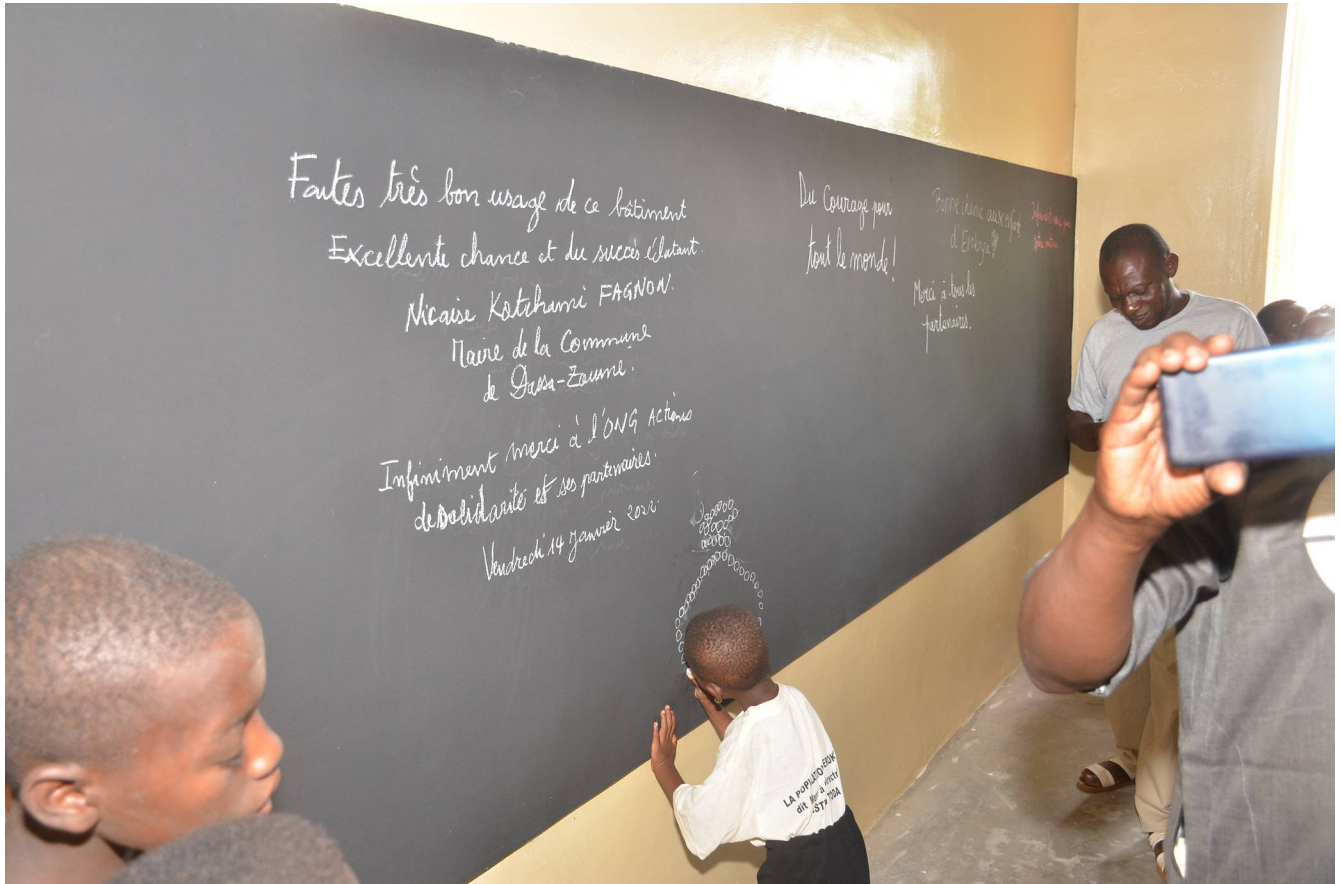 Faites très bon usage de ce bâtiment
Excellente chance et du succès éclatant.
Nicaise Kotchami FAGNON.
Maire de la Commune
de Dassa-Zoumé.
Infiniment merci à l'ONG Actions
de solidarité et ses partenaires.
Vendredi 14 Janvier 2022
Du Courage pour
tout le monde!
Bonne chance aux
Merci à tous les
partenaires.
LA
dit